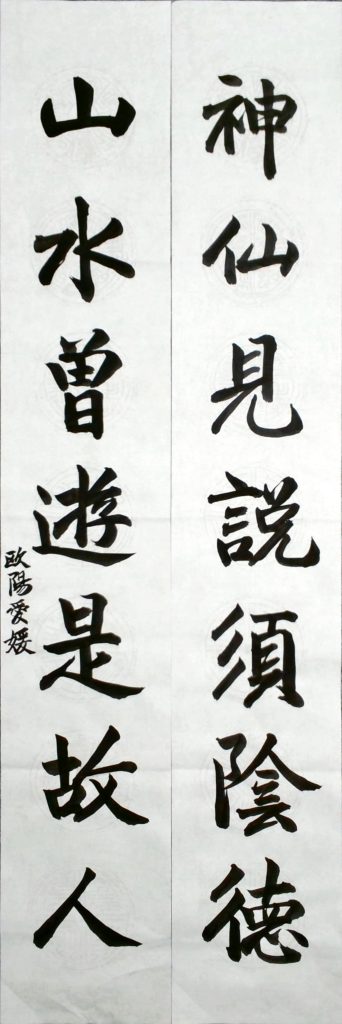 神仙見説須陰德
山水曾遊是故人
歐陽愛媛